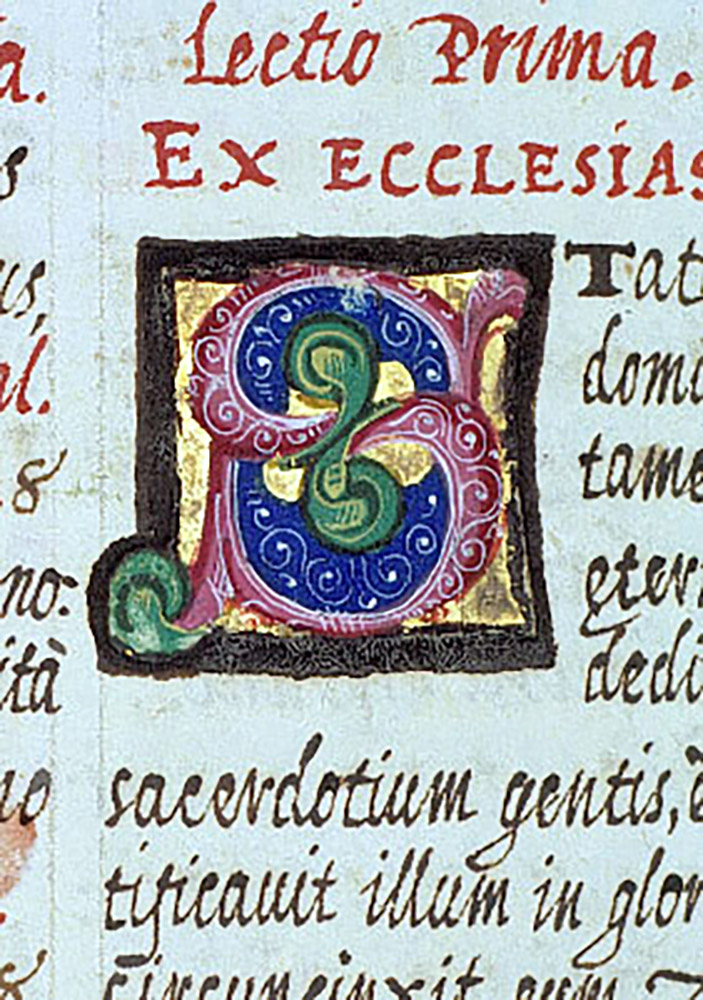 a.
s
us,
al.
8
no:
ità
no
8
Lectio Prima.
EX ECCLESIAS
STat
dom
tame
eter
dedi
sacerdotium gentis, &
tificauit illum in glor
circuncinxit eum